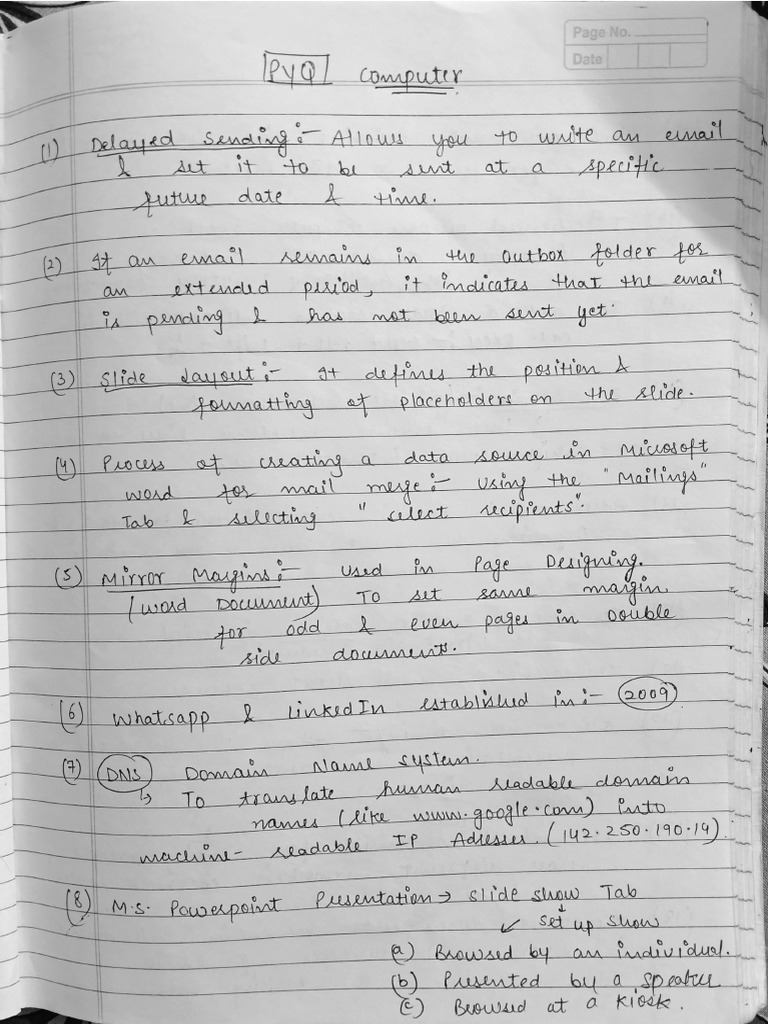 Page No.
Date
PYQ Computer
(1) Delayed Sending :- Allows you to write an email
& set it to be sent at a specific
future date & time.
(2) If an email remains in the Outbox folder for
an extended period, it indicates that the email
is pending & has not been sent yet.
(3) Slide Layout :- It defines the position &
formatting of placeholders on the slide.
(4) Process of creating a data source in Microsoft
word for mail merge :- Using the "Mailings"
Tab & selecting "select recipients".
(5) Mirror Margins :- Used in Page Designing.
(Word Document) To set same margin
for odd & even pages in Double
side documents.
(6) Whatsapp & LinkedIn established in :- 2009
(7) DNS Domain Name System.
↳ To translate human readable domain
names (like www.google.com) into
machine-readable IP Adresses. (142.250.190.14).
(8) M.S. Powerpoint Presentation → Slide show Tab
↓
↙ Set up show
(a) Browsed by an individual.
(b) Presented by a speaker
(c) Browsed at a kiosk.